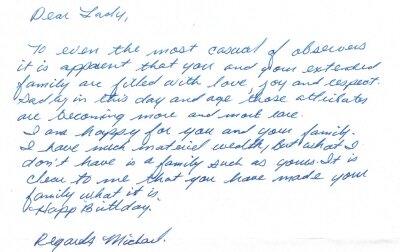 Dear Lady,
To even the most casual of observers
it is apparent that you and your extended
family are filled with love, joy and respect.
Sadly in this day and age those attributes
are becoming more and more rare.
I am happy for you and your family.
I have much material wealth, but what I
don't have is a family such as yours. It is
clear to me that you have made your
family what it is.
Happ Birthday.
Regards Michael.